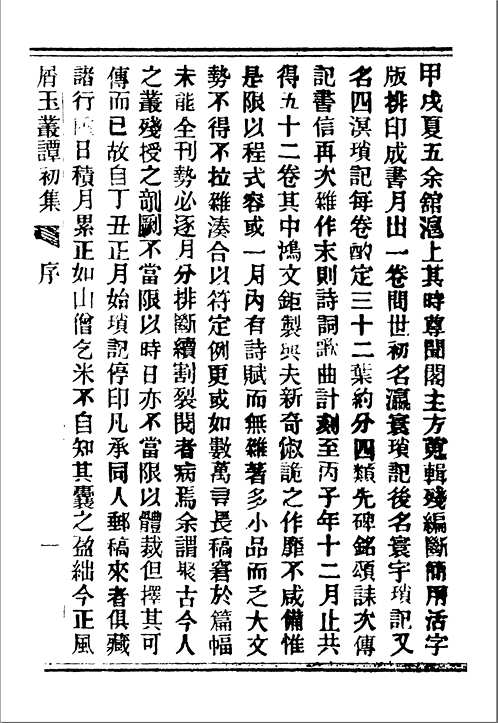 甲戌夏五余舘滬上其時尊聞閣主方蒐輯殘編斷簡用活字
版排印成書月出一卷問世初名瀛寰瑣記後名寰宇瑣記又
名四溟瑣記每卷酌定三十二葉約分四類先碑銘頌誄次傳
記書信再次雜作末則詩詞歌曲計刻至丙子年十二月止共
得五十二卷其中鴻文鉅製與夫新奇俶詭之作靡不咸備惟
是限以程式容或一月內有詩賦而無雜著多小品而乏大文
勢不得不拉雜湊合以符定例更或如數萬尋長稿窘於篇幅
未能全刊勢必逐月分排斷續割裂閱者病焉余謂聚古今人
之叢殘授之剞劂不當限以時日亦不當限以體裁但擇其可
傳而已故自丁丑正月始瑣記停印凡承同人郵稿來者俱藏
諸行日積月累正如山僧乞米不自知其囊之盈絀今正風
屑玉叢譚初集 序 一